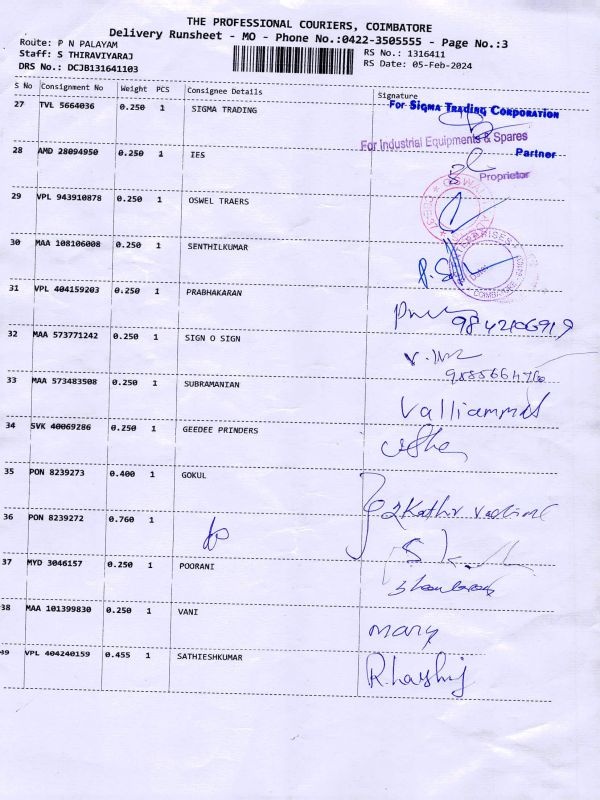 THE PROFESSIONAL COURIERS, COIMBATORE
Delivery Runsheet - MO - Phone No.:0422-3505555 - Page No.:3
Route: P N PALAYAM
Staff: S THIRAVIYARAJ
DRS No.: DCJB131641103
RS No.: 1316411
RS Date: 05-Feb-2024
S No Consignment No Weight PCS Consignee Details Signature
27 TVL 5664036 0.250 1 SIGMA TRADING
For SIGMA TRADING CORPORATION
Partner
28 AMD 28094950 0.250 1 IES
For Industrial Equipments & Spares
Proprietor
29 VPL 943910878 0.250 1 OSWEL TRAERS
30 MAA 108106008 0.250 1 SENTHILKUMAR
31 VPL 404159203 0.250 1 PRABHAKARAN
9842106919
32 MAA 573771242 0.250 1 SIGN O SIGN
33 MAA 573483508 0.250 1 SUBRAMANIAN
Valliammal
34 SVK 40069286 0.250 1 GEEDEE PRINDERS
35 PON 8239273 0.400 1 GOKUL
36 PON 8239272 0.760 1
37 MYD 3046157 0.250 1 POORANI
38 MAA 101399830 0.250 1 VANI
mary
49 VPL 404240159 0.455 1 SATHIESHKUMAR